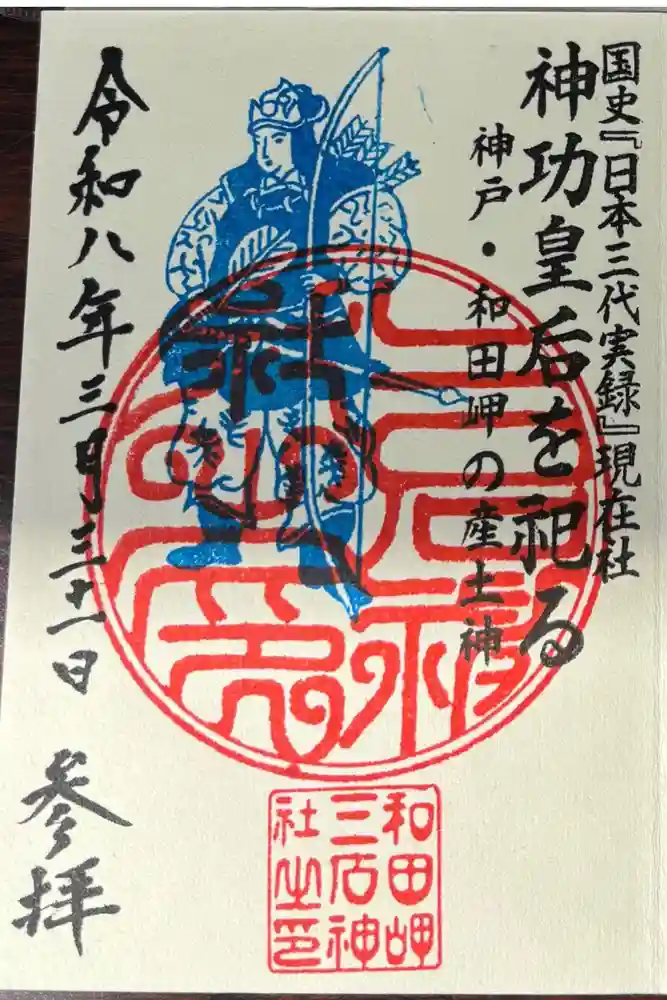 国史『日本三代実録』現在社
神功皇后を祀る
神戸・和田岬の産土神
三石神
社之印
和田岬
三石神
社之印
令和八年三月三十一日
参拝